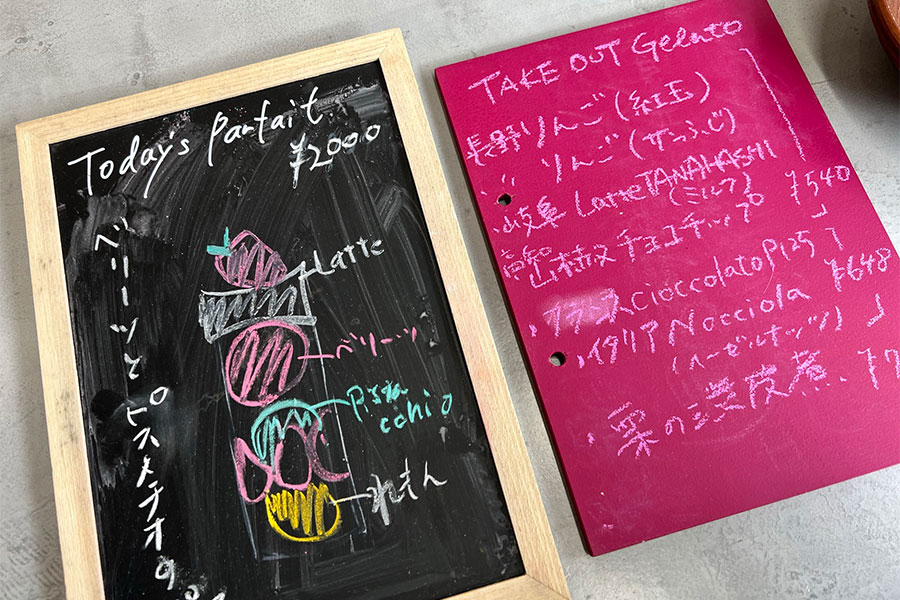 Today's Parfait
¥2000
ベリーツとピスタチオの
Latte
ベリーツ
Pista
cchio
れもん
TAKE OUT Gelato
長野りんご(紅玉)
〃 りんご(サンふじ)
・岐阜 Latte TANAHASHI
(ミルク)
¥540
チョコチップ
・フランス Cioccolato P125
¥648
・イタリア Nocciola
(ヘーゼルナッツ)
・栗の渋皮煮 ¥7